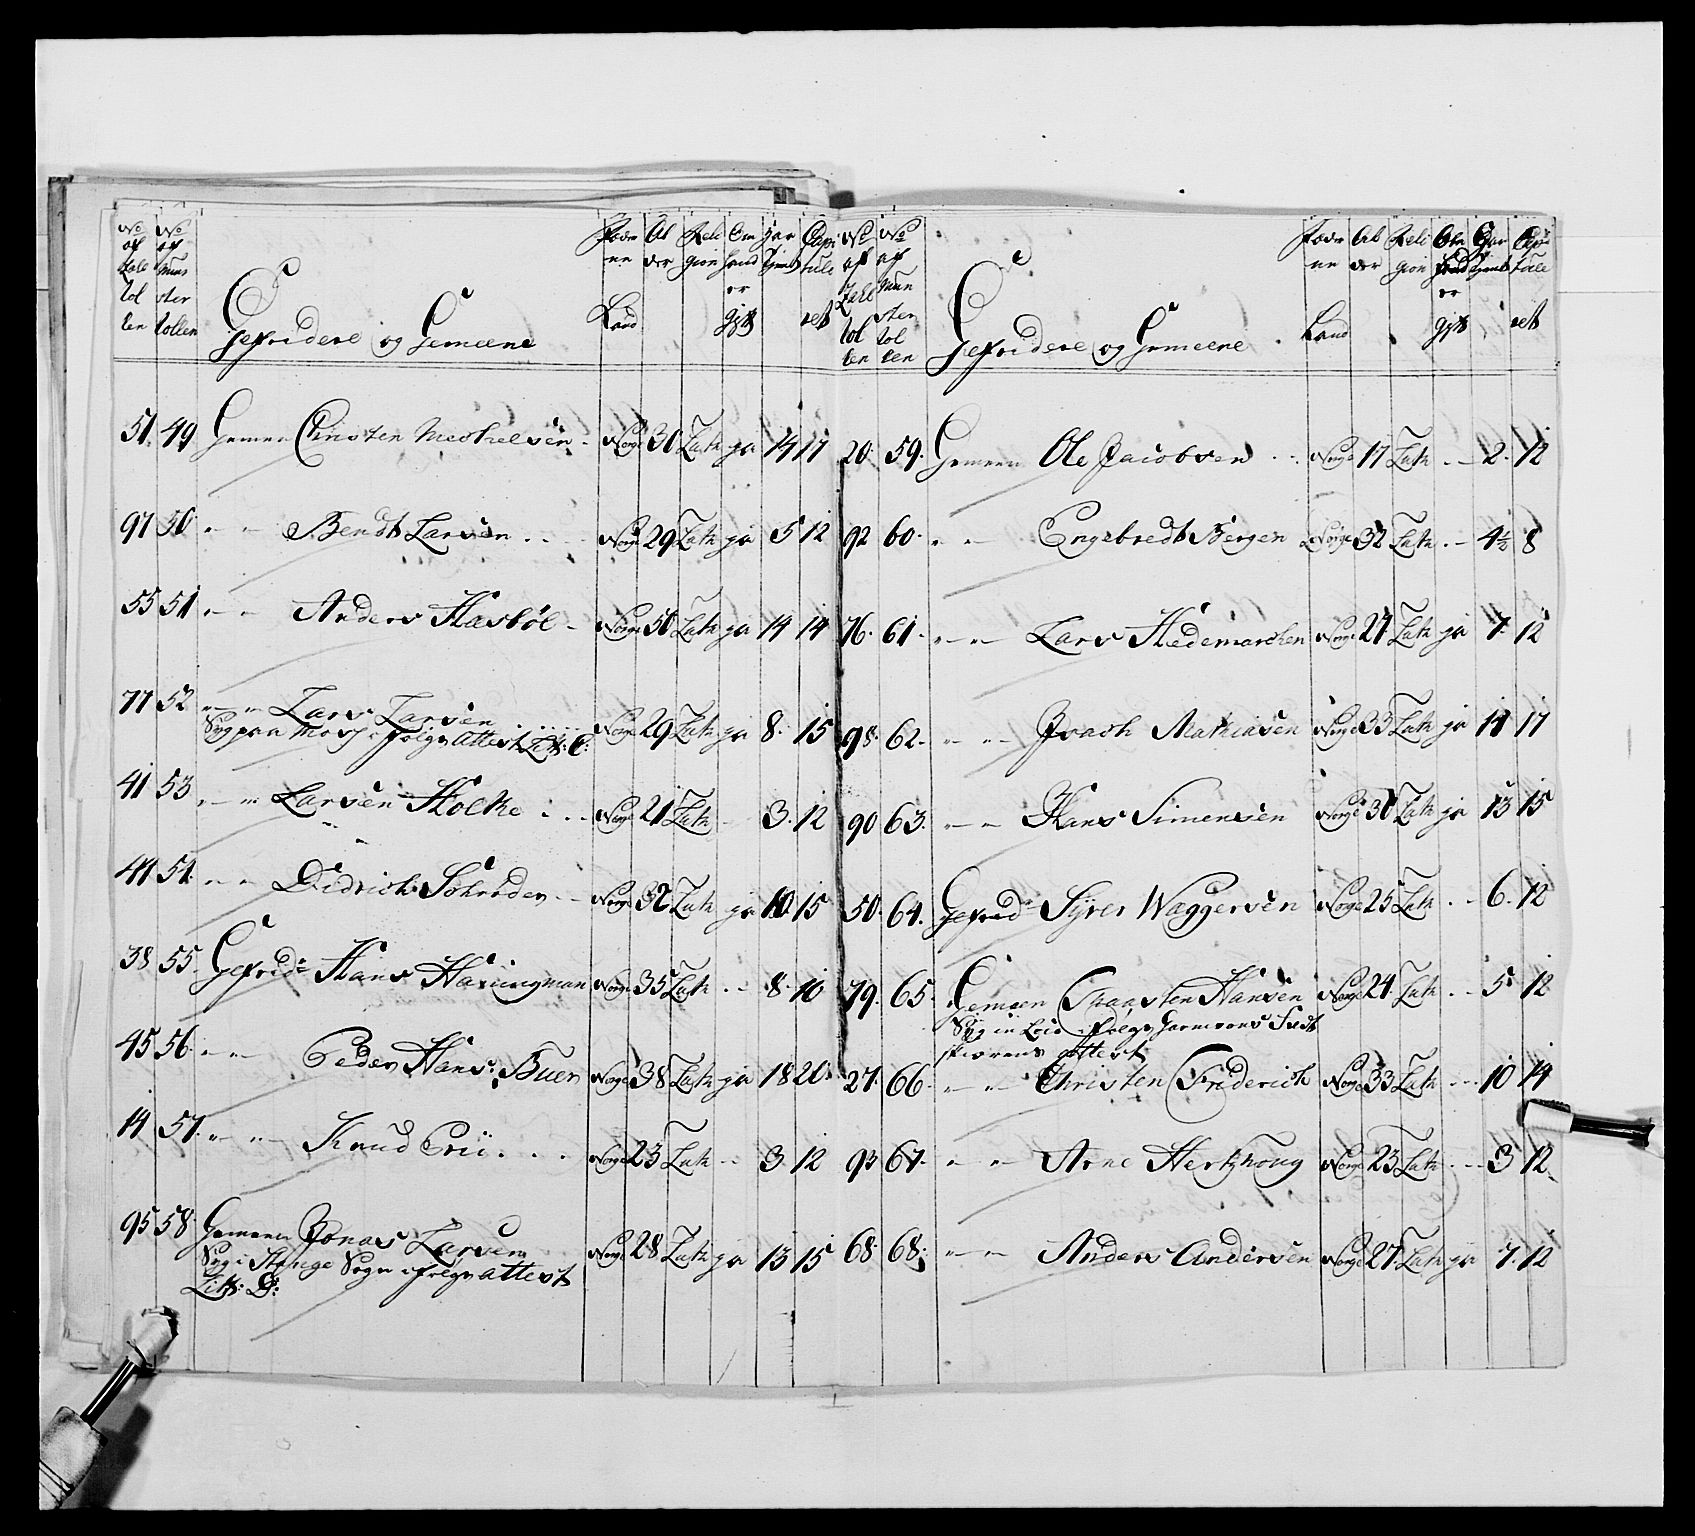 No af Rule Rol len | No af Mun ster rollen | Gefridere og Gemeene | Føde ne Land | Al der | Reli gion | Om hand er gift | Har tient | Capi tule ret
51. 49. Gemeen Christen Mechelsen - Norge 30 Luth ja 14 17
97 50 " " Bendt Larsen . . Norge 29 Luth ja 5 12
55 51 " " Anders Hasbøl - Norge 50 Luth ja 14 14
77 52 " " Lars Larsen Norge 29 Luth ja 8. 15
Syg paa Moss i følge Attest Litr: C:
41 53 " " Larsen Holke . . Norge 21 Luth - 3. 12
44 54. " " Didrich Schrøder - - Norge 32 Luth ja 10 15
38 55. Gefrid: Hans Haningman Norge 35 Luth - - 8. 16
45 56. " " Peder Hans: Buer Norge 38 Luth ja 18 20
14 57. " " Knud Erii . . . Norge 23 Luth - - 3 12
95 58. Gemeen Jonas Larsen Norge 28 Luth ja 13 15
Syg i Stange Sogn i følge Attest
Litr: D:
No af Rule Rol len | No af Mun ster rol len | Gefridere og Gemeene | Føde ne Land | Al der | Reli gion | Om hand er gift | Har tient | Capi tule ret
20. 59. Gemeen Ole Jacobsen . . Norge 17 Luth . - 2. 12
92 60. " " Engebredt Bergen Norge 32 Luth . - 4½ 8
76. 61. " " Lars Hedemarchen Norge 27 Luth ja 7. 12
98. 62. " " Isach Mathiasen Norge 33 Luth ja 14 17
90 63. " " Hans Simensen Norge 30 Luth ja 13 15
50. 64. Gefrid: Syver Waggersen Norge 25 Luth . - 6. 12
79. 65. Gemeen Thaasten Hansen Norge 24. Luth . - 5 12
Syg i følge Attest
27. 66. " " Christen Friderich Norge 33 Luth . . 10 14
93 67. " " Arne Hertzhoug Norge 23 Luth . - 3 12
68. 68. " " Anders Andersen Norge 27. Luth ja 7. 12